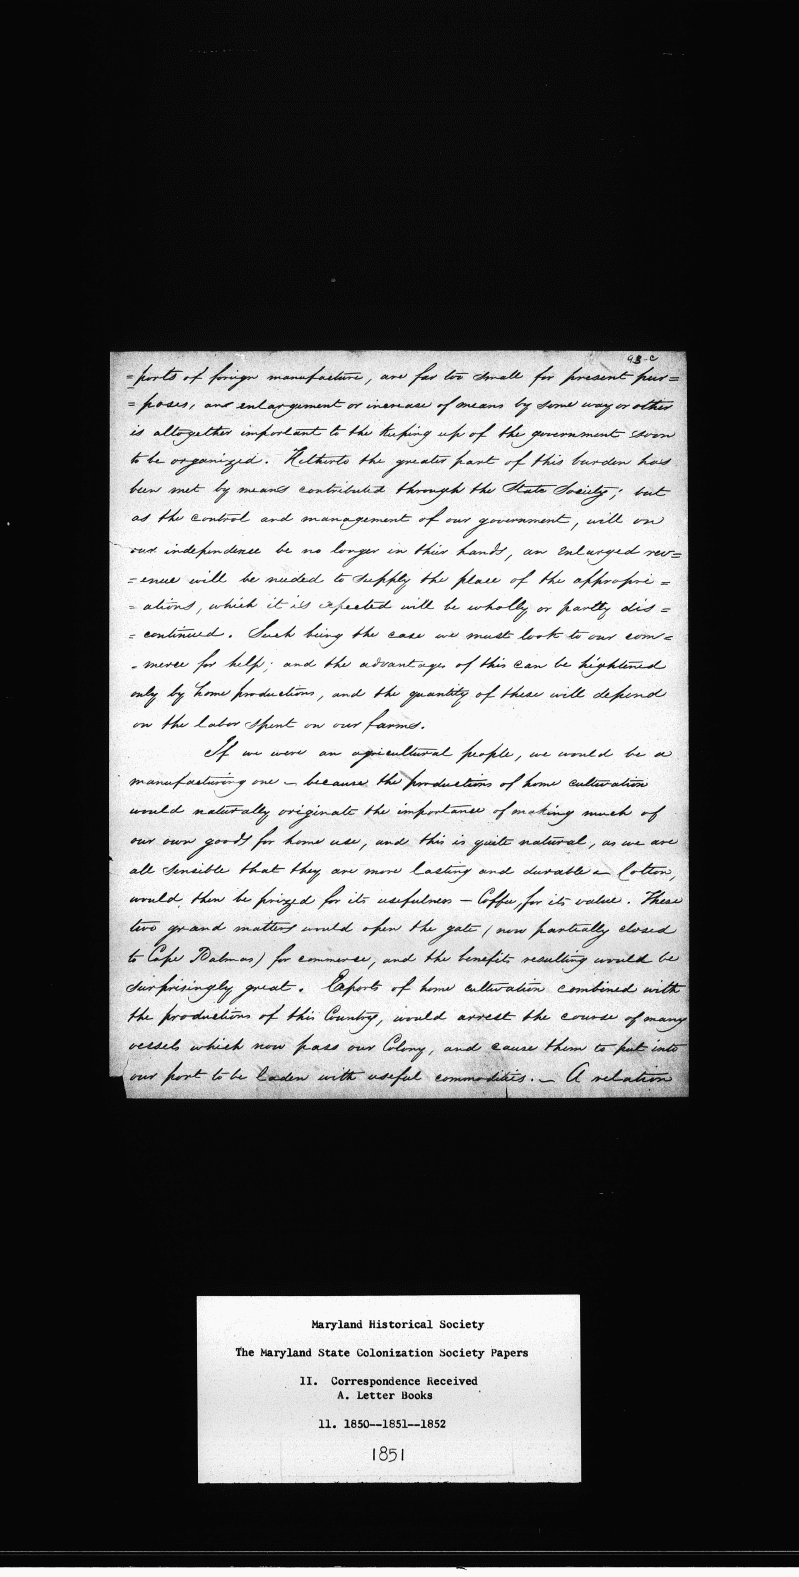 93-C
=ports of foreign manufacture, are far too small for present pur=
=poses, and enlargement or increase of means by some way or other
is altogether important to the keeping up of the government soon
to be organized. Hitherto the greater part of this burden has
been met by means contributed through the State Society; but
as the control and management of our government, will on
our independence be no longer in their hands, an enlarged rev=
=enue will be needed to supply the place of the appropri=
=ations, which it is expected will be wholly or partly dis=
=continued. Such being the case we must look to our com=
=merce for help; and the advantages of this can be hightened
only by home productions, and the quantity of these will depend
on the labor spent on our farms.
If we were an agricultural people, we would be a
manufacturing one – because the productions of home cultivation
would naturally originate the importance of making much of
our own goods for home use, and this is quite natural, as we are
all sensible that they are more lasting and durable – Cotton,
would, then be prized for its usefulness – Coffee, for its value. These
two grand matters would open the gate (now partially closed
to Cape Palmas) for commerse, and the benefits resulting would be
surprisingly great. Exports of home cultivation combined with
the productions of this Country, would arrest the course of many
vessels which now pass our Colony, and cause them to put into
our port to be laden with useful commodities. – A relation
Maryland Historical Society
The Maryland State Colonization Society Papers
II. Correspondence Received
A. Letter Books
11. 1850--1851--1852
1851